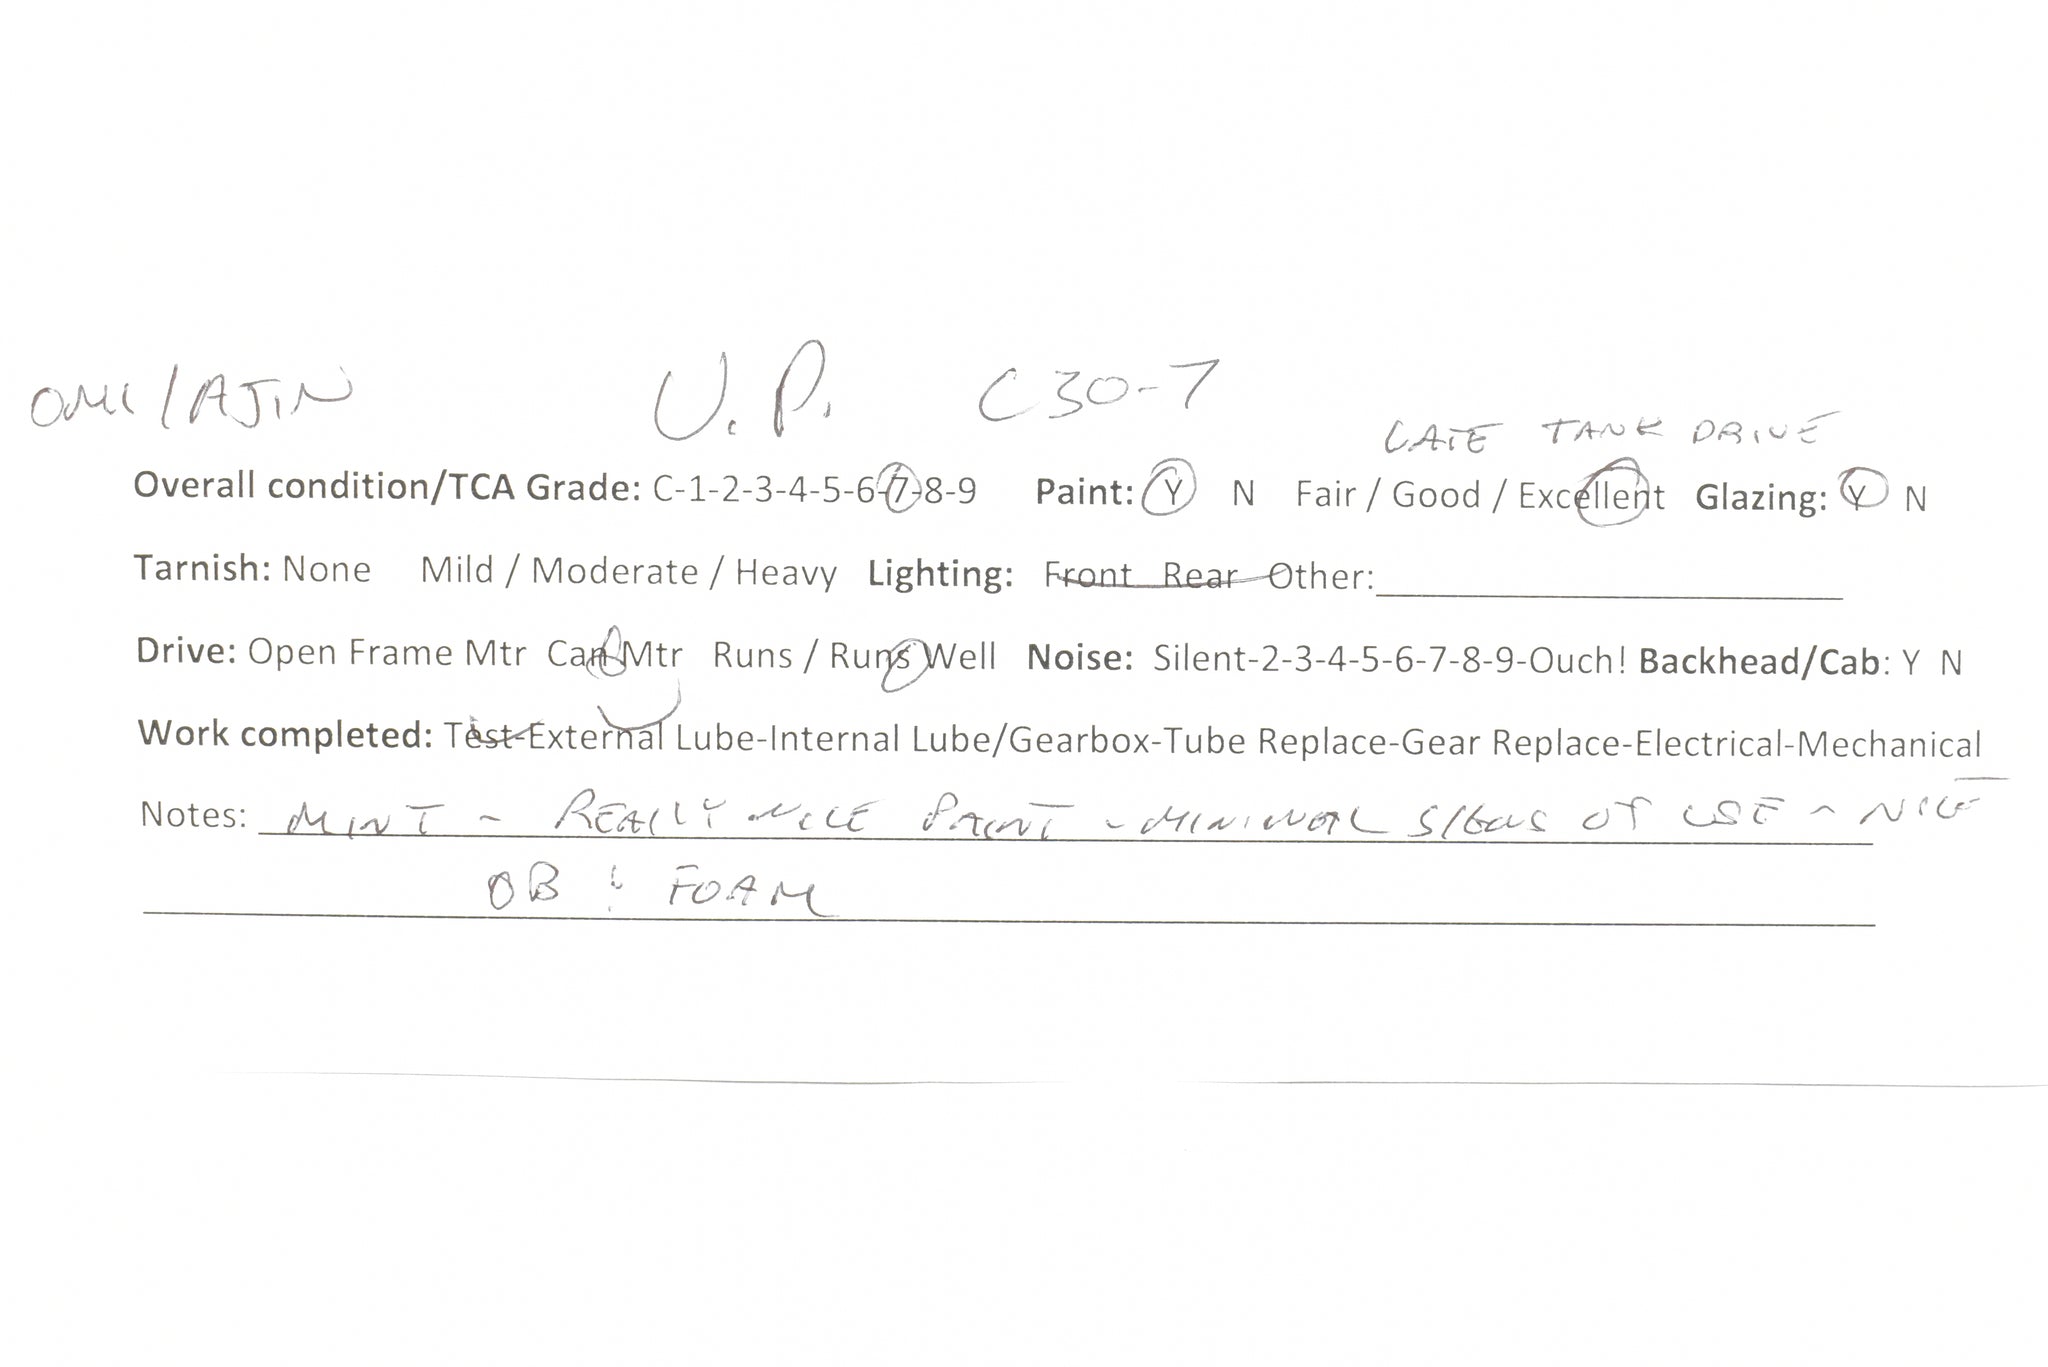 OMI/AJIN U.P. C30-7
LATE TANK DRIVE
Overall condition/TCA Grade: C-1-2-3-4-5-6-7-8-9 Paint: Y N Fair / Good / Excellent Glazing: Y N
Tarnish: None Mild / Moderate / Heavy Lighting: Front Rear Other:
Drive: Open Frame Mtr Can Mtr Runs / Runs Well Noise: Silent-2-3-4-5-6-7-8-9-Ouch! Backhead/Cab: Y N
Work completed: Test-External Lube-Internal Lube/Gearbox-Tube Replace-Gear Replace-Electrical-Mechanical
Notes: MINT - REALLY NICE PAINT - MINIMAL SIGNS OF USE - NICE
OB & FOAM